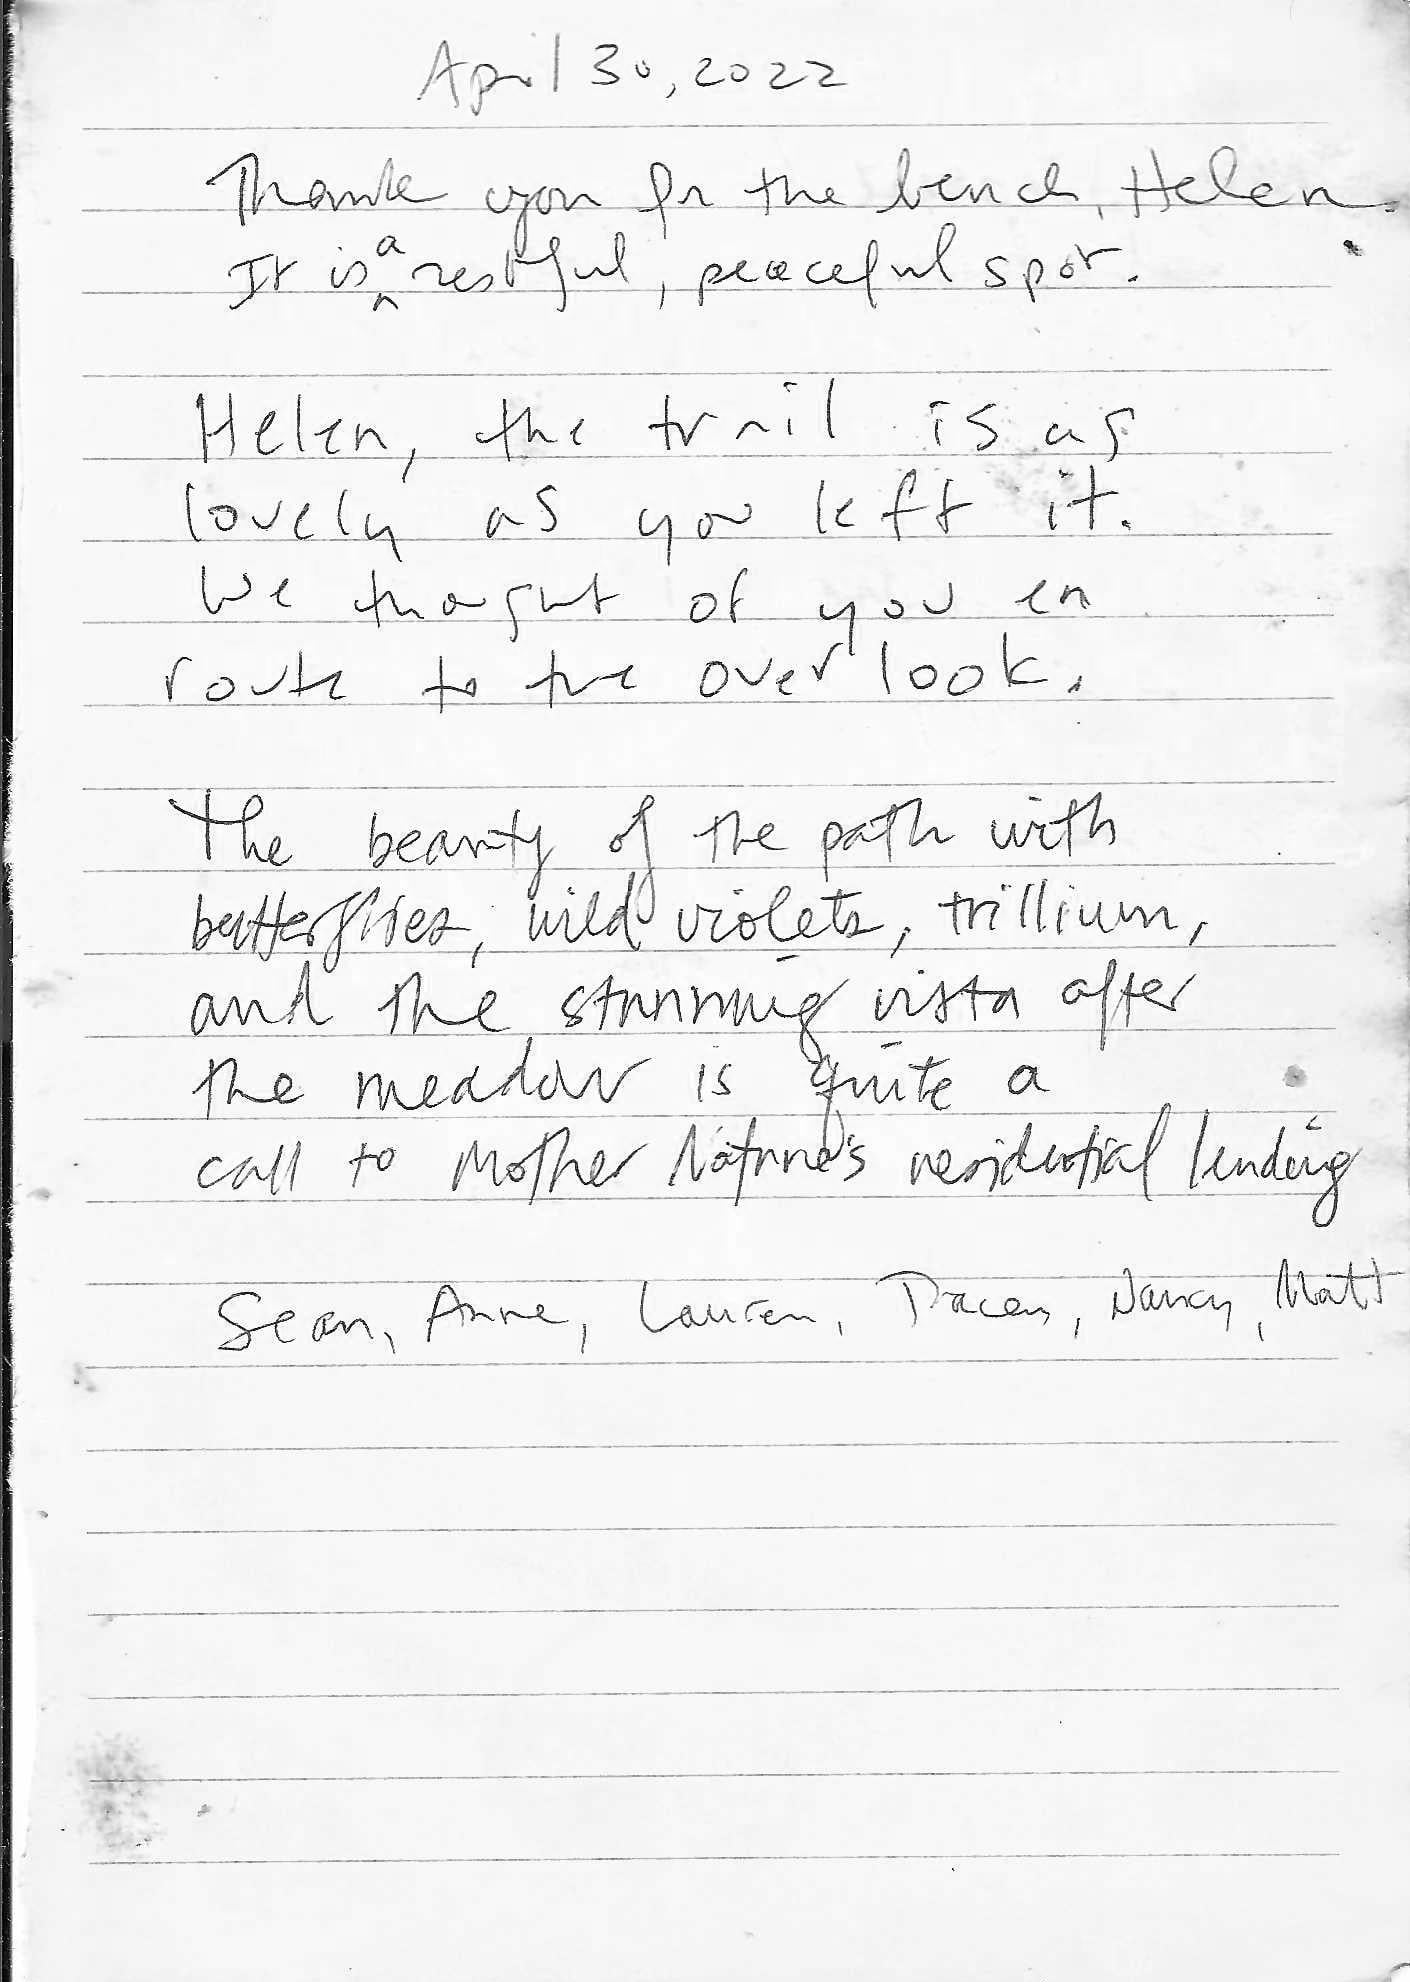 April 30, 2022
Thank you for the bench, Helen.
It is a restful, peaceful spot.
Helen, the trail is as
lovely as you left it.
We thought of you en
route to the overlook.
The beauty of the path with
butterflies, wild violets, trillium,
and the stunning vista after
the meadow is quite a
call to Mother Nature's residential lending
Sean, Anne, Lauren, Tracey, Nancy, Matt